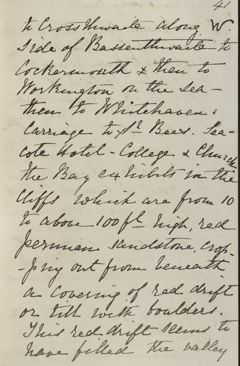 41
to Crossthwaite along W.
Side of Bassenthwaite to
Cockermouth & then to
Workington on the sea -
then to Whitehaven &
Carriage to St Bees. Sea-
cote Hotel - College & Church
The Bay exhibits in the
Cliffs which are from 10
to above 100 ft high, red
permian sandstone, crop-
-ping out from beneath
a covering of red drift
or till with boulders.
This red drift seems to
have filled the valley